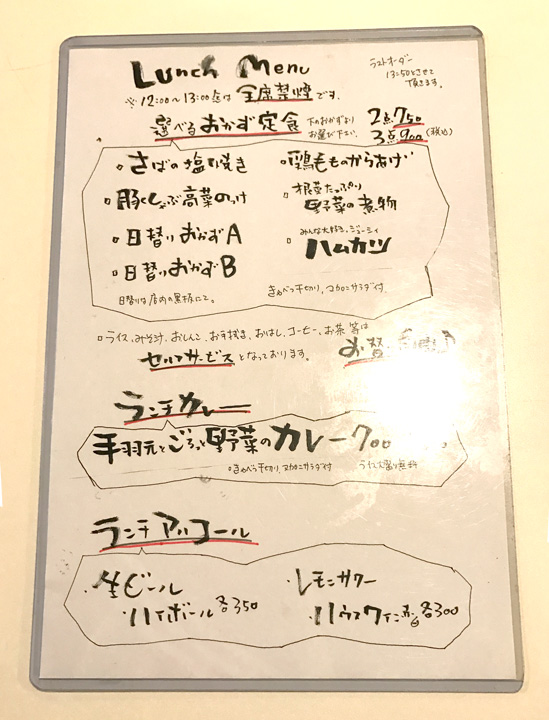 Lunch Menu
ラストオーダー
13:50とさせて
頂きます。
※12:00~13:00は全席禁煙です。
選べるおかず定食
下のおかずより
お選び下さい。
2点750
3点900(税込)
さばの塩焼き
鶏ももからあげ
豚しゃぶ高菜のっけ
根菜たっぷり
野菜の煮物
日替りおかずA
みんな大好き、ジューシィ
ハムカツ
日替りおかずB
日替りは店内の黒板にて。
きゃべつ千切り、マカロニサラダ付
ライス、みそ汁、おしんこ、おすすめ、おはし、コーヒー、お茶等は
セルフサービスとなっております。
お替
ランチカレー
手羽元とごろっと野菜のカレー700
きゃべつ千切り、マカロニサラダ付
ライス大盛り無料
ランチアルコール
生ビール
レモンサワー
ハイボール各350
ハウスワイン赤白各300